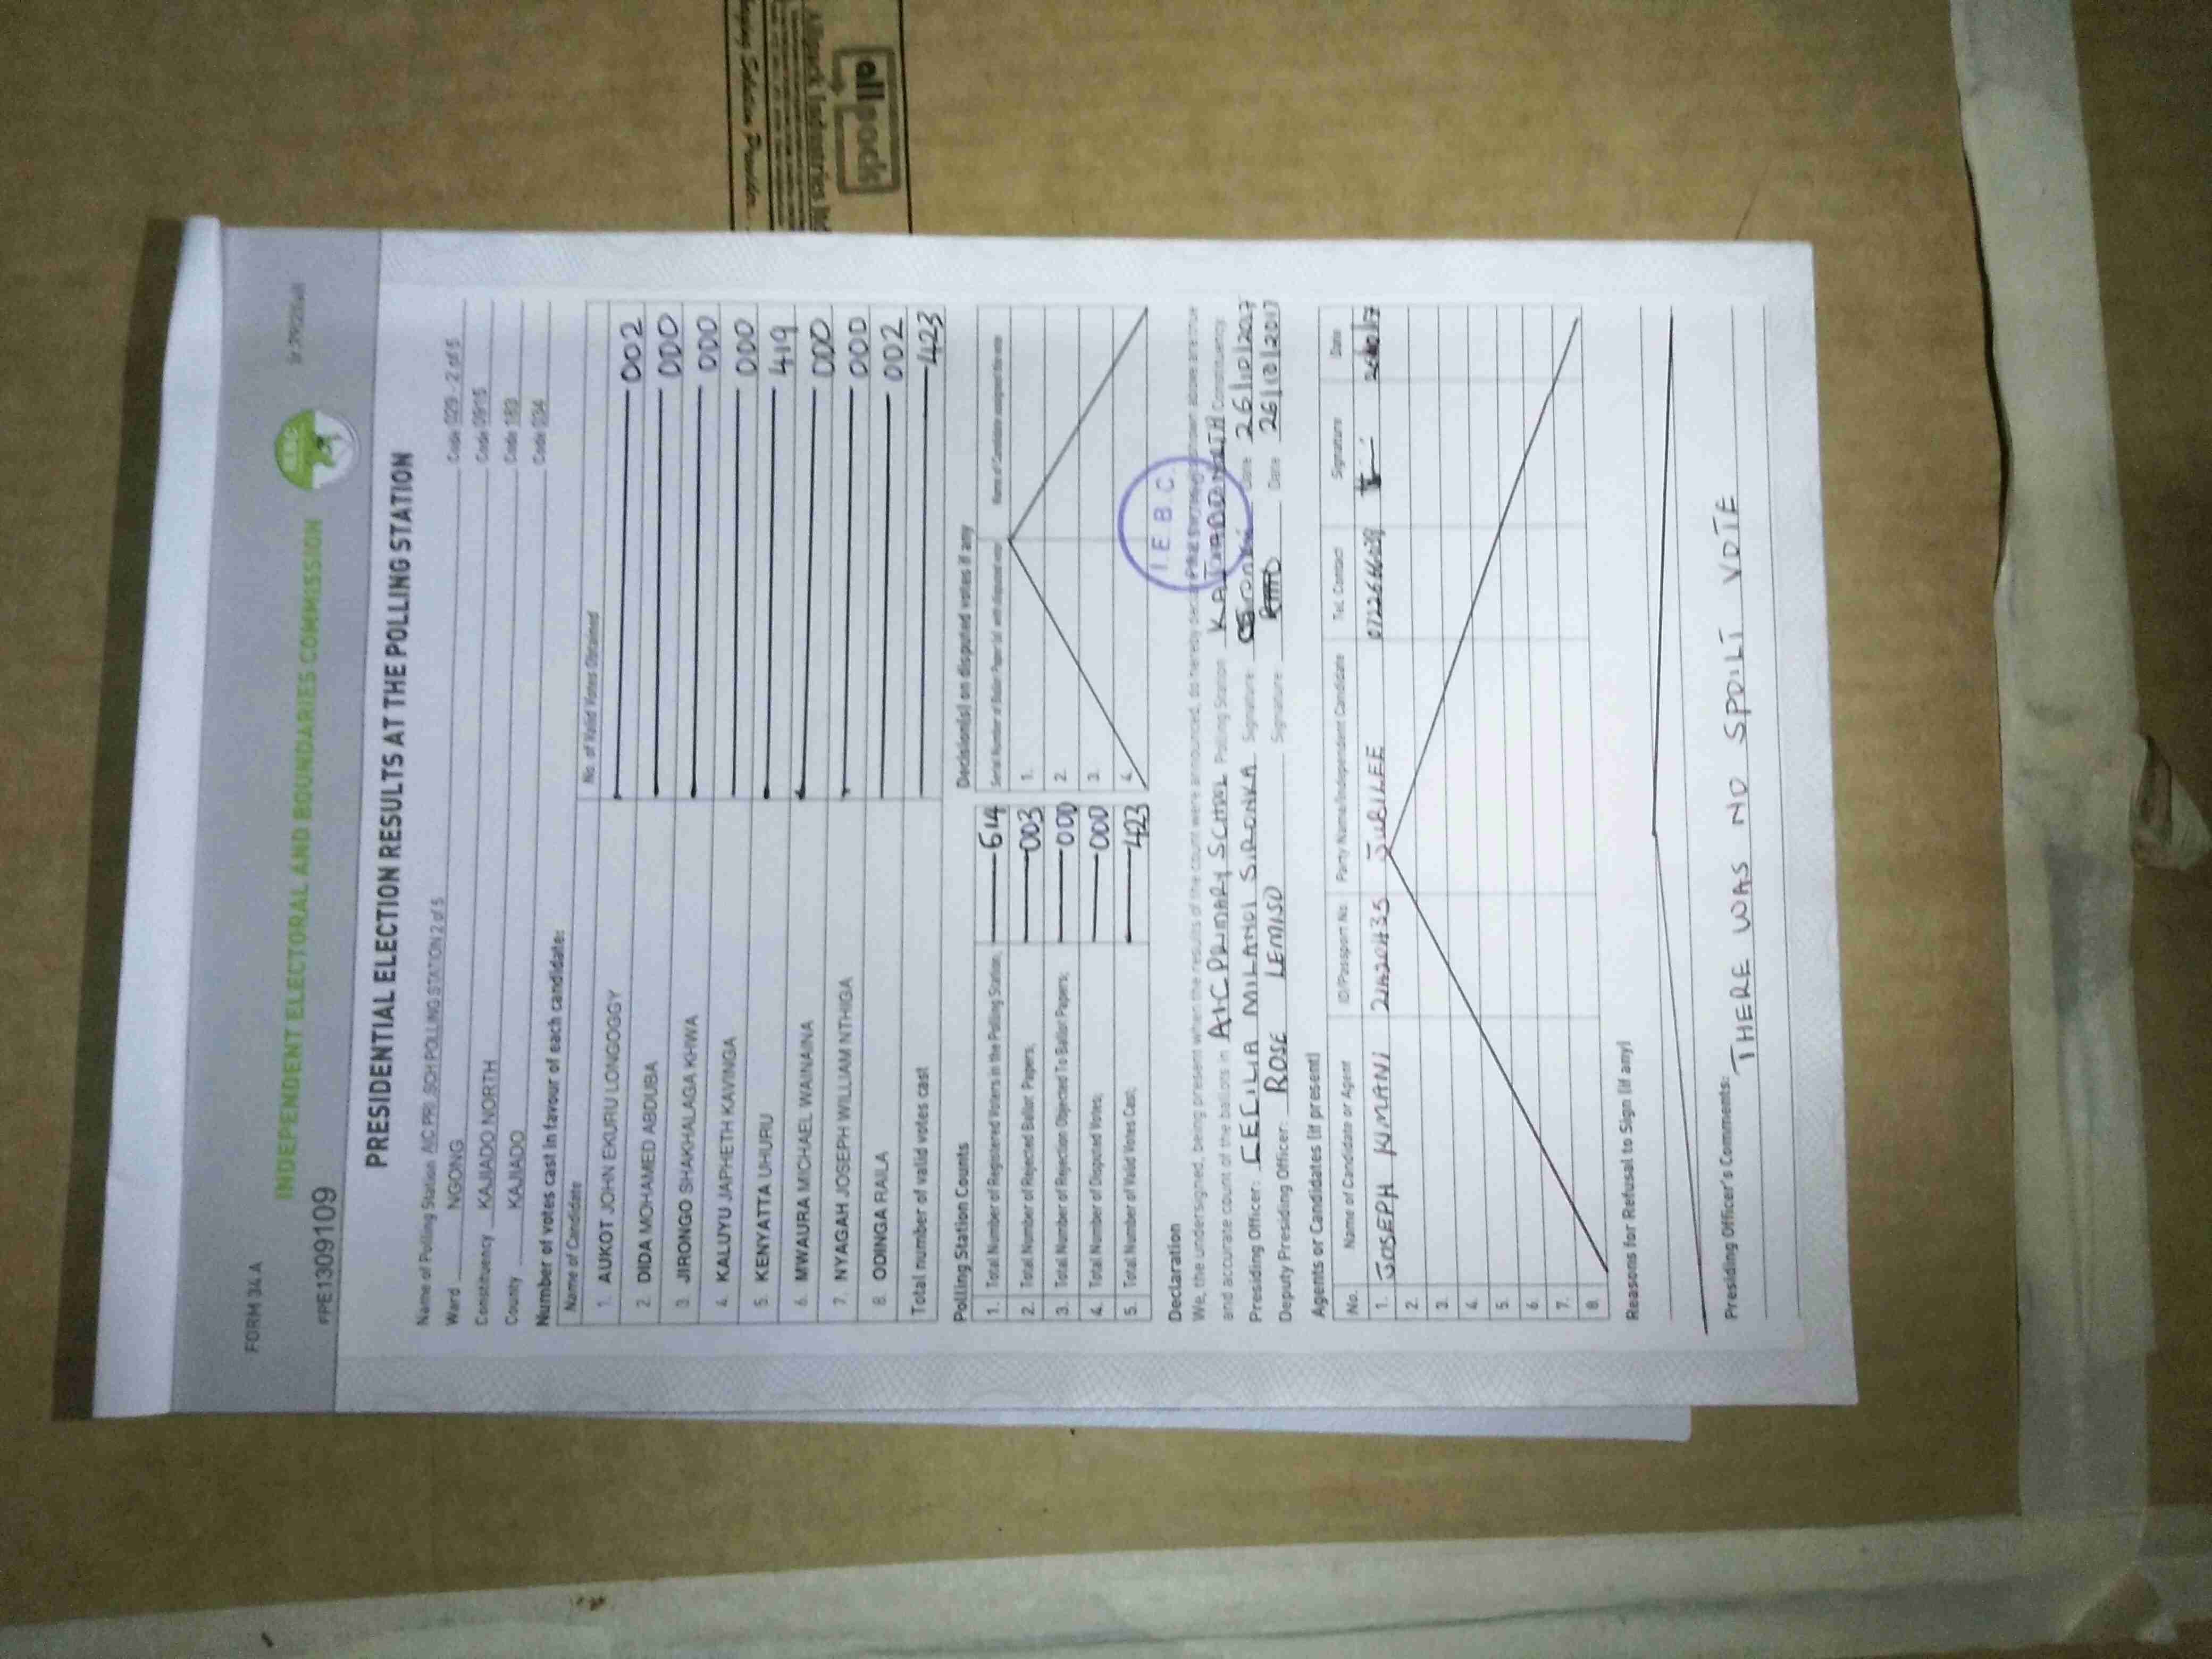 FORM 34 A
INDEPENDENT ELECTORAL AND BOUNDARIES COMMISSION
#PE13091109
PRESIDENTIAL ELECTION RESULTS AT THE POLLING STATION
Name of Polling Station AIC PRI. SCH POLLING STATION 2 of 5 Code 029 - 2 of 5
Ward NGONG Code 0915
Constituency KAJIADO NORTH Code 183
County KAJIADO Code 034
Number of votes cast in favour of each candidate:
Name of Candidate No. of Valid Votes Obtained
1. AUKOT JOHN EKURU LONGOGGY 002
2. DIDA MOHAMED ABDUBA 000
3. JIRONGO SHAKHALAGA KHWA 000
4. KALUYU JAPHETH KAVINGA 000
5. KENYATTA UHURU 419
6. MWAURA MICHAEL WAINAINA 000
7. NYAGAH JOSEPH WILLIAM NTHIGA 000
8. ODINGA RAILA 002
Total number of valid votes cast 423
Polling Station Counts
1. Total Number of Registered Voters in the Polling Station; 614
2. Total Number of Rejected Ballot Papers; 003
3. Total Number of Rejection Objected To Ballot Papers; 000
4. Total Number of Disputed Votes; 000
5. Total Number of Valid Votes Cast; 423
Decision(s) on disputed votes if any
1.
2.
3.
4.
I.E.B.C.
Declaration
We, the undersigned, being present when the results of the count were announced, do hereby declare that the results shown above are true
and accurate count of the ballots in A.I.C PRIMARY SCHOOL Polling Station KAJIADO NORTH Constituency.
Presiding Officer: CECILIA MILANOI SIRONKA Signature: Date 26/10/2017
Deputy Presiding Officer: ROSE LEMISO Signature: Date 26/10/2017
Agents or Candidates (if present)
No. Name of Candidate or Agent ID/Passport No. Party Name/Independent Candidate Tel. Contact Signature Date
1. JOSEPH KIMANI JUBILEE
2.
3.
4.
5.
6.
7.
8.
Reasons for Refusal to Sign (if any)
Presiding Officer's Comments:
THERE WAS NO SPOILT VOTE
allpack
Allpack Industries ltd